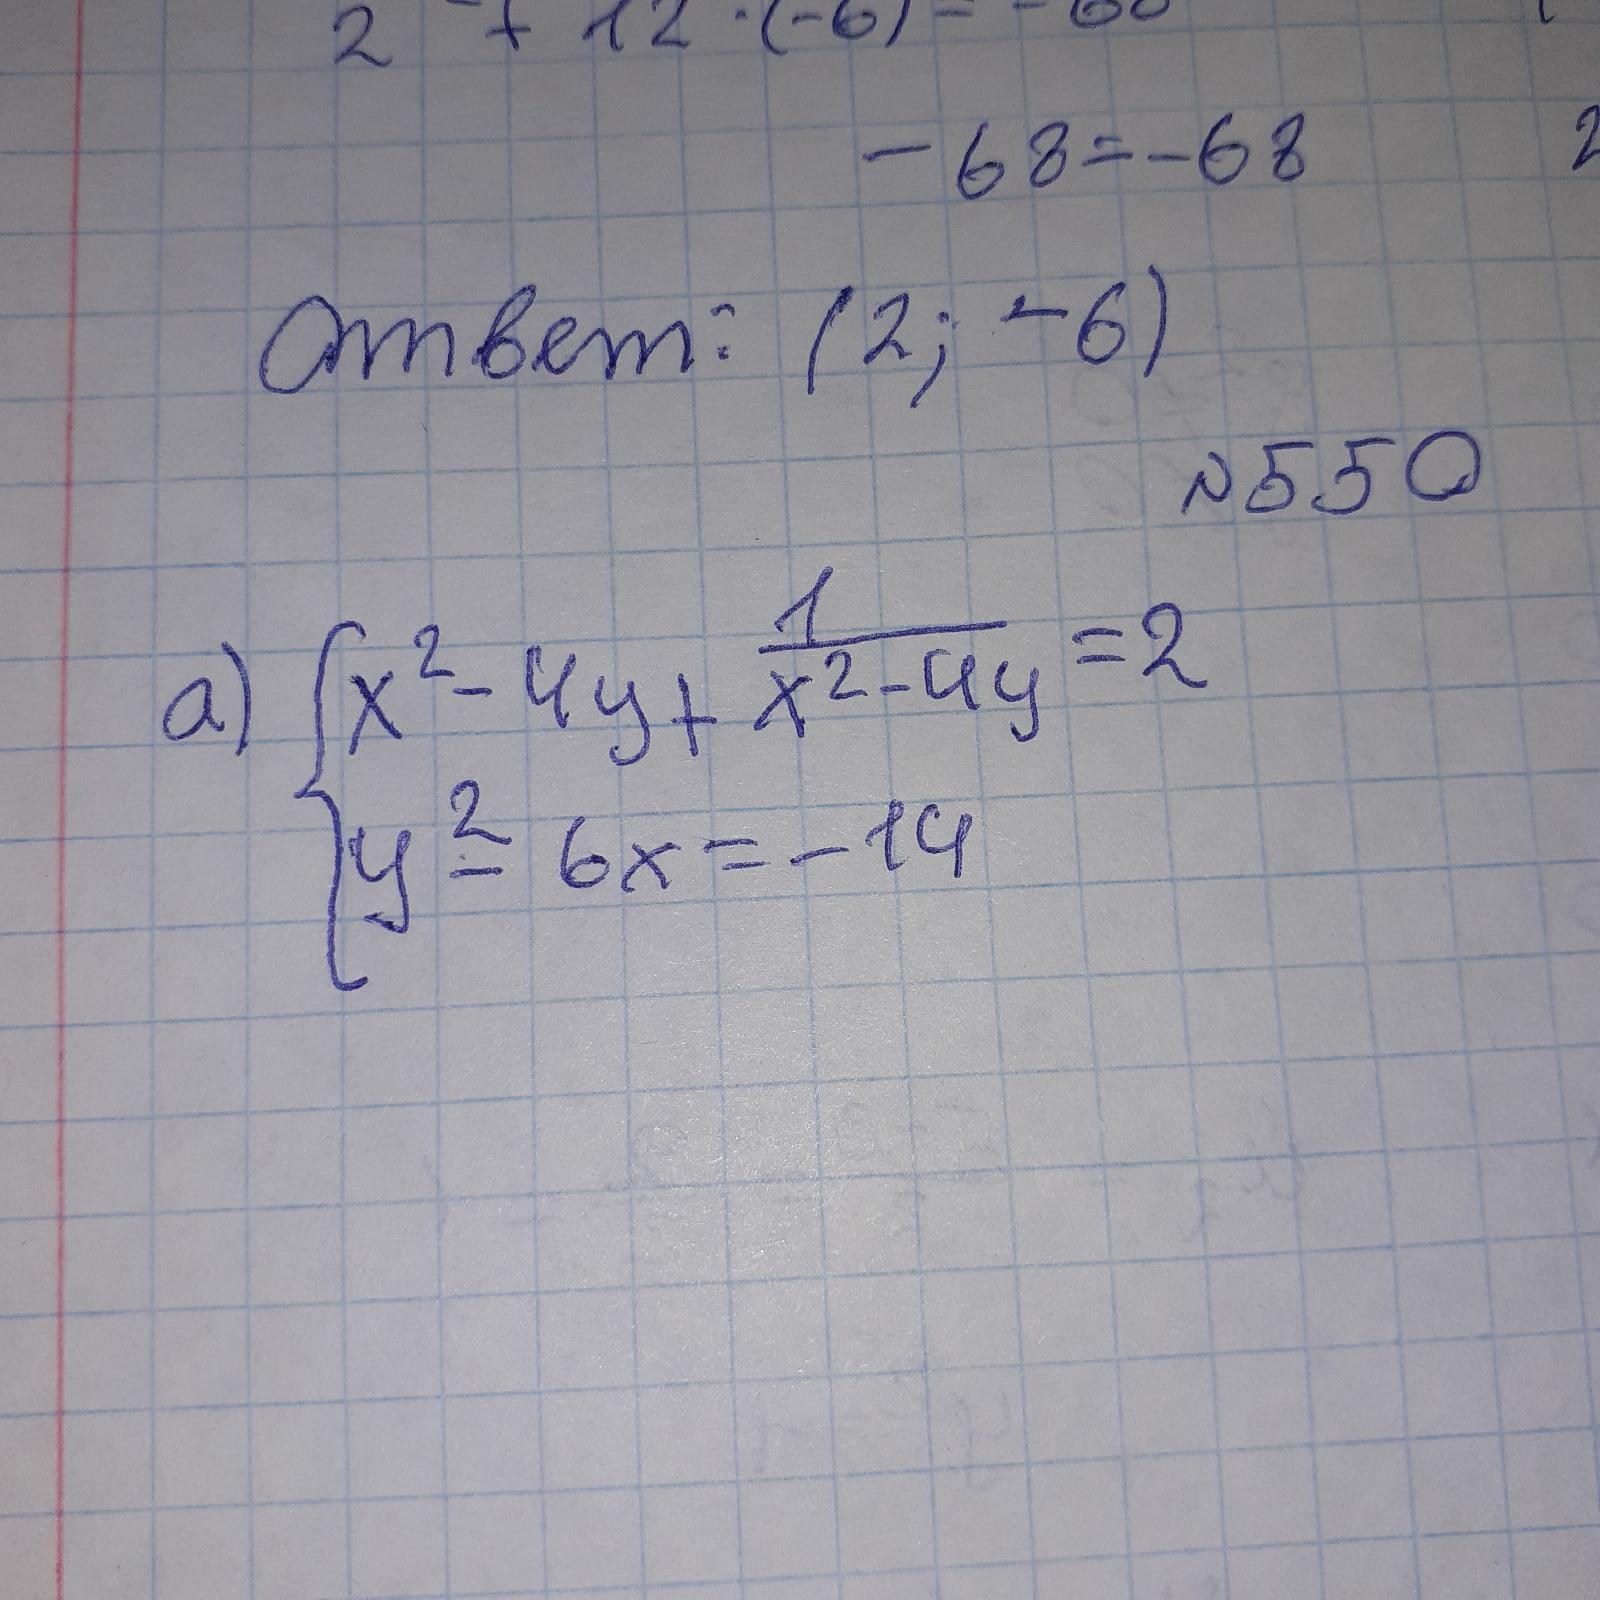 2 + 12·(-6) = -68
-68=-68
Ответ: (2; -6)
№550
а) { x² - 4y + 1/(x² - 4y) = 2
y² - 6x = -14